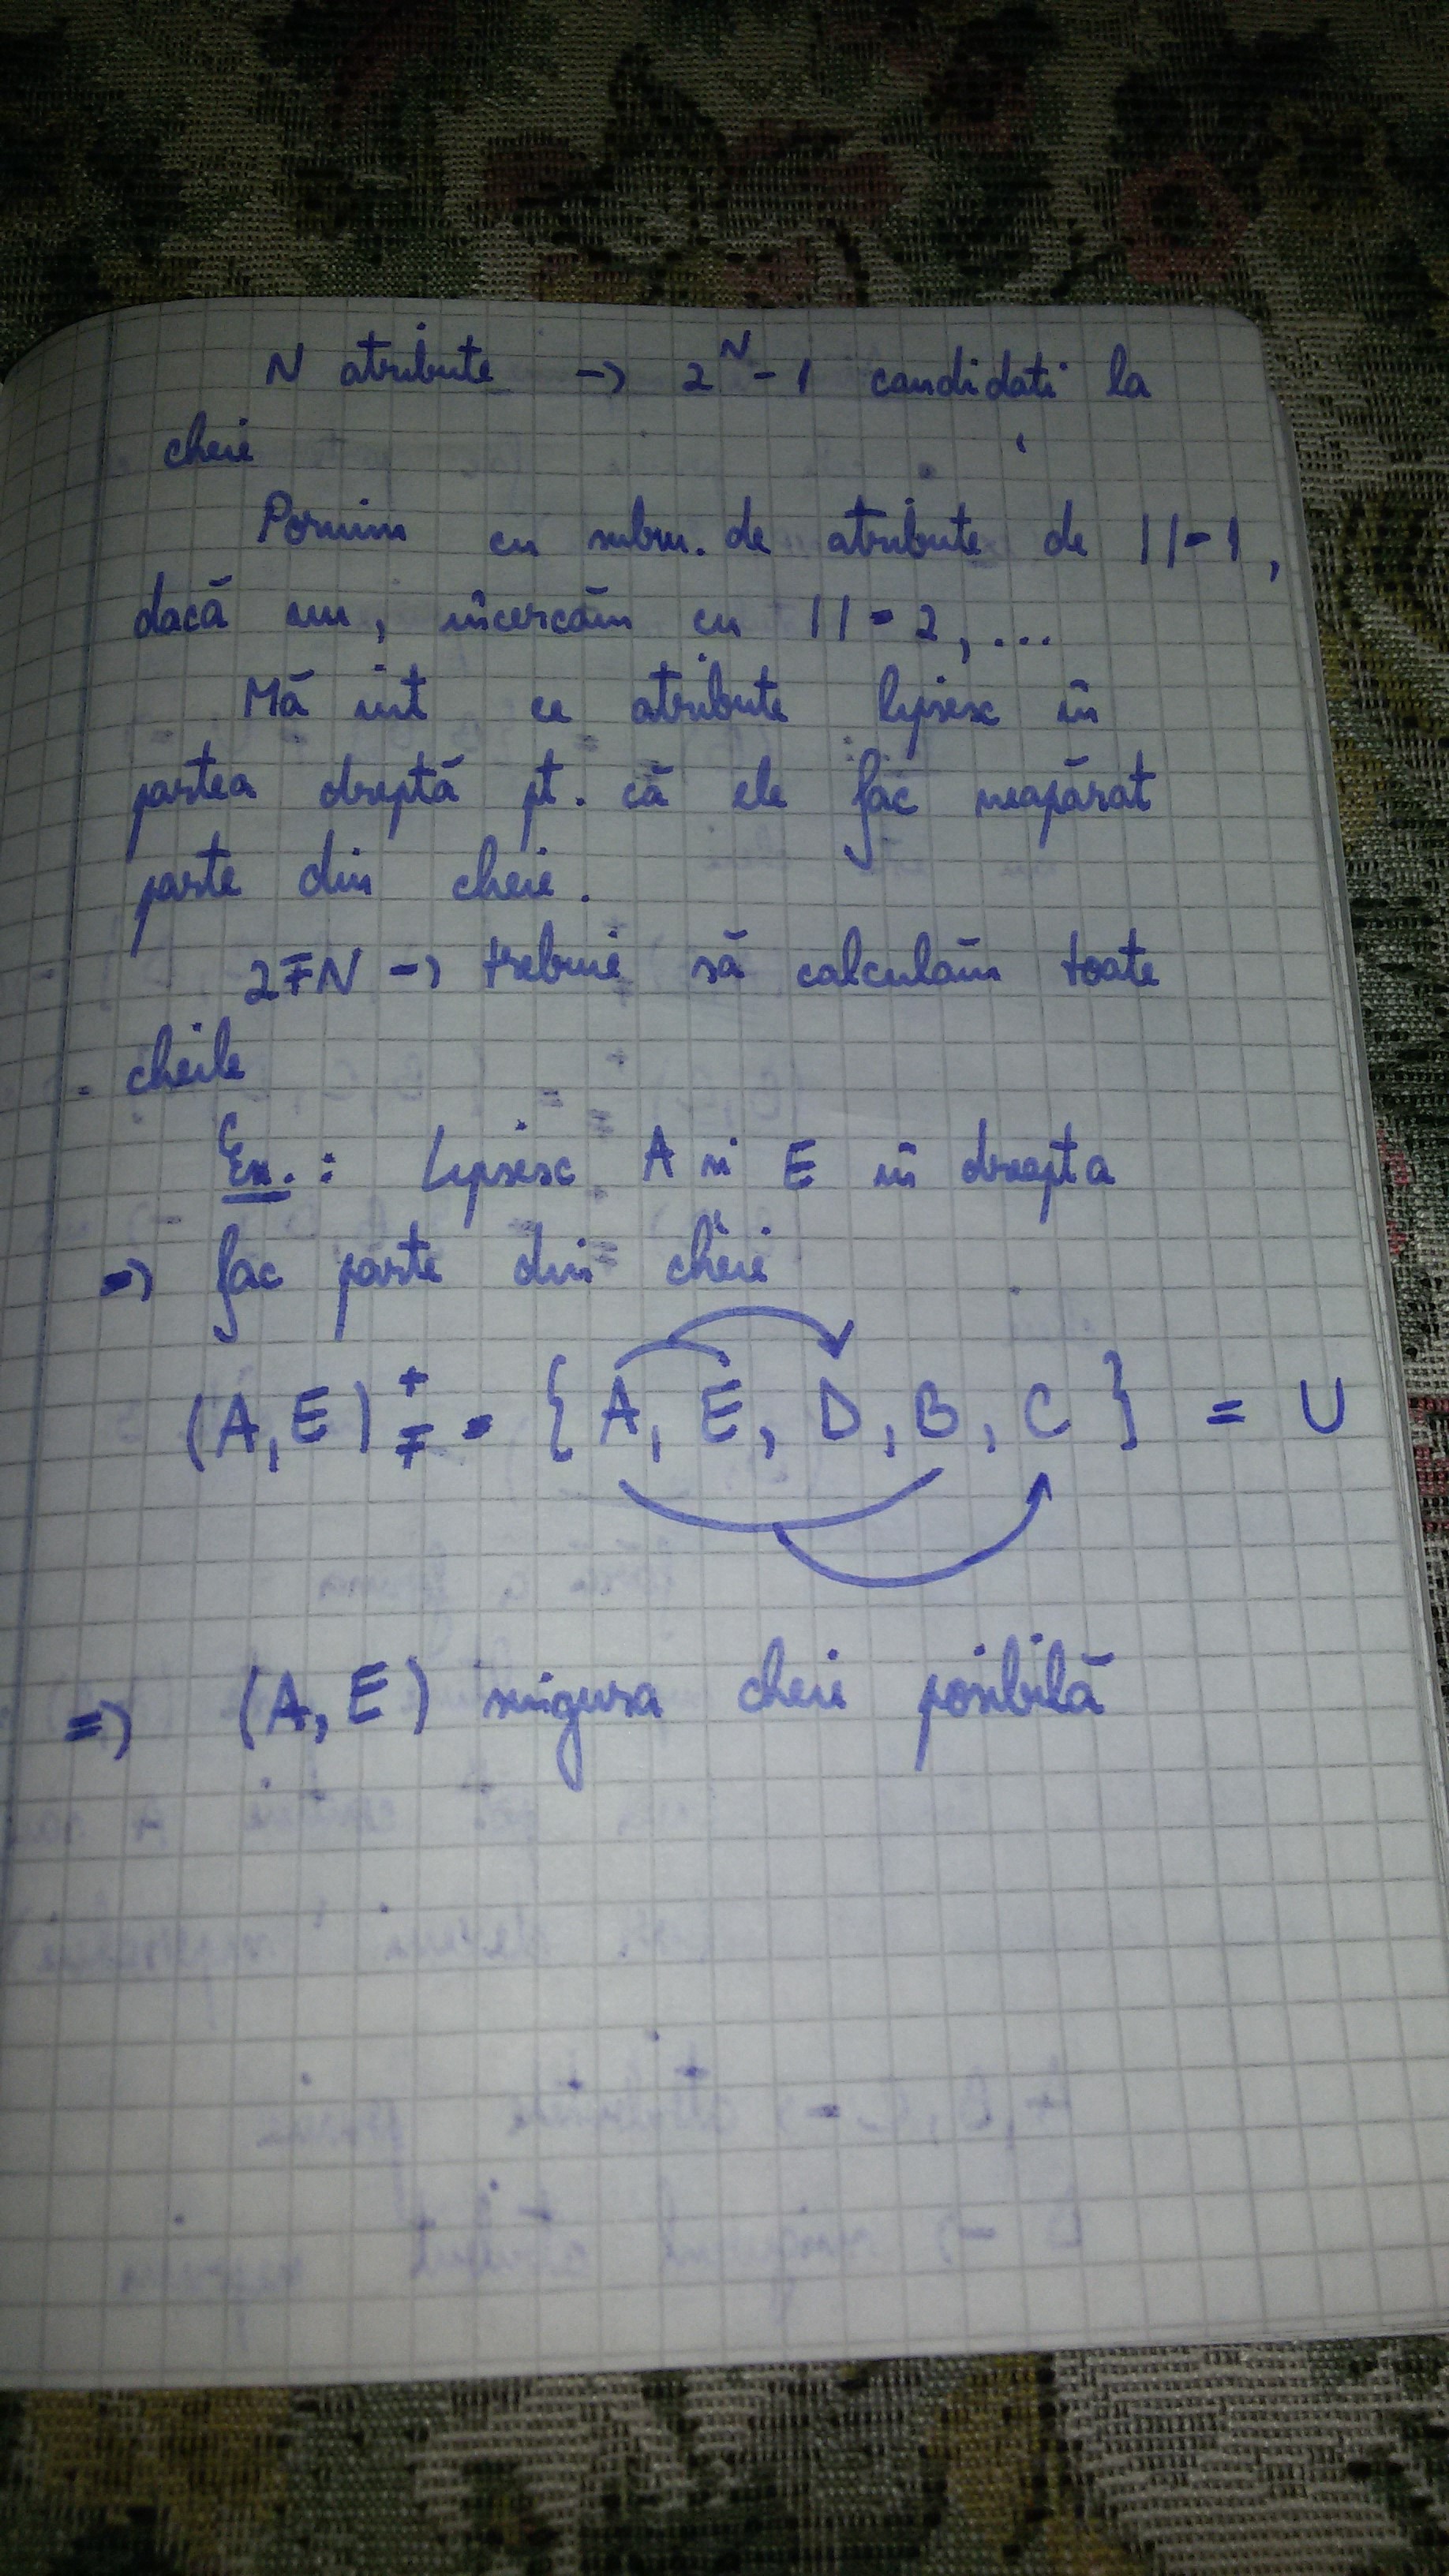 N atribute -> 2^N - 1 candidați la
cheie
Pornim cu subm. de atribute de | | = 1,
dacă nu, încercăm cu | | = 2, ...
Mă uit ce atribute lipsesc în
partea dreptă pt. că ele fac neapărat
parte din cheie.
2FN -> trebuie să calculăm toate
cheile
Ex.: Lipsesc A și E în dreapta
=> fac parte din cheie
(A, E)⁺F = { A, E, D, B, C } = U
=> (A, E) singura cheie posibilă